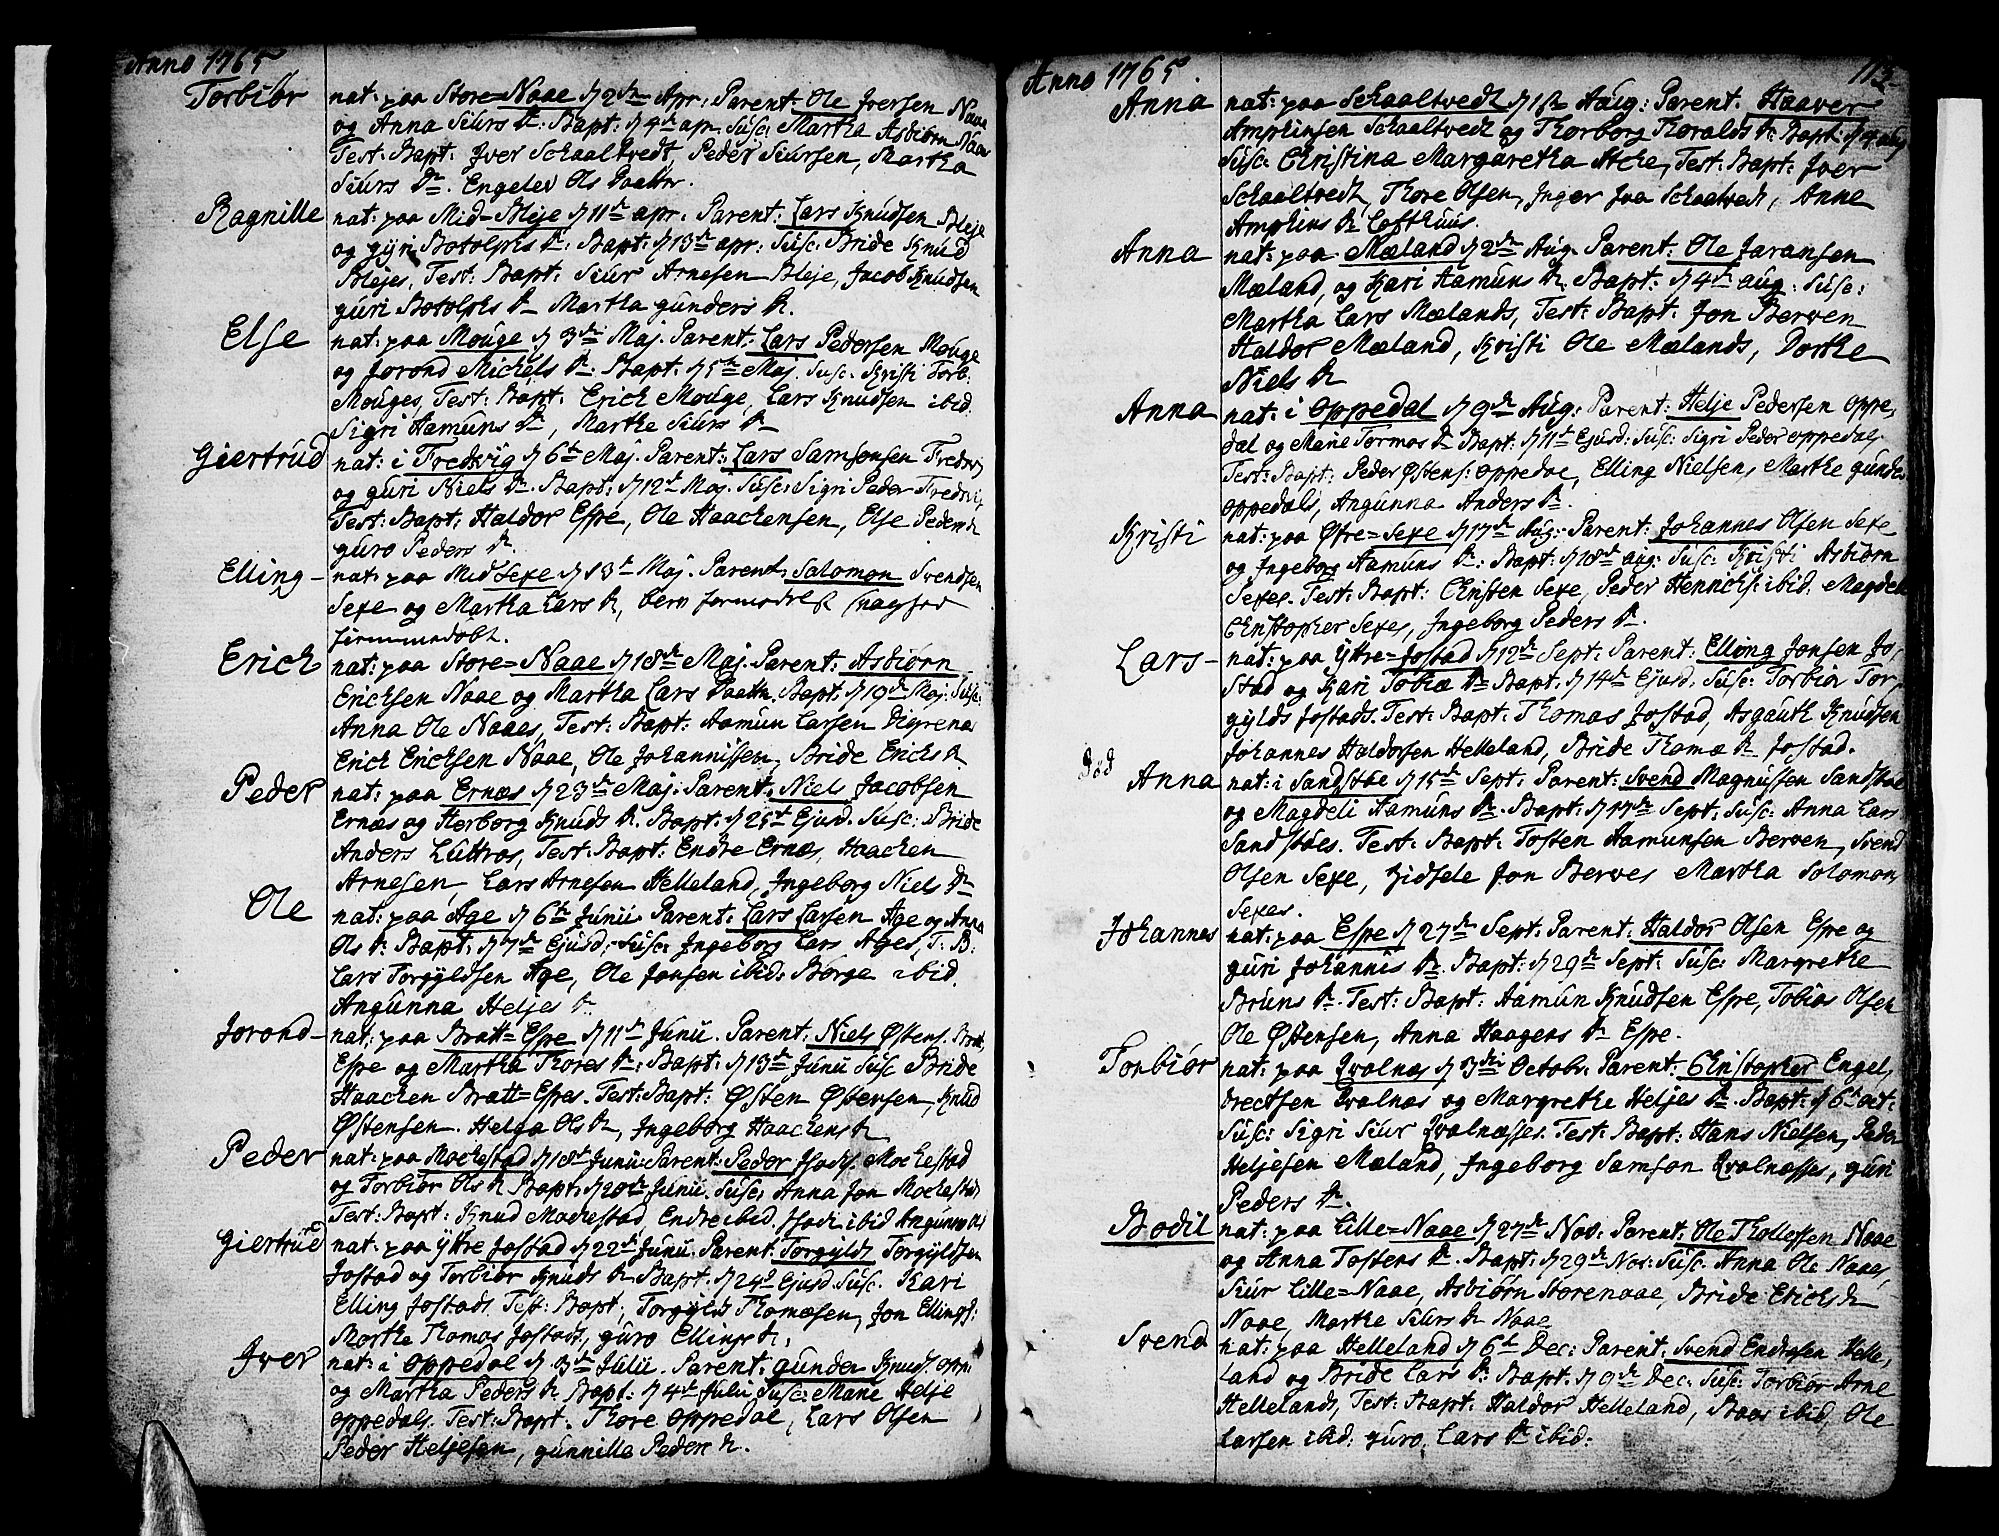 Anno 1765
Torbiør nat: paa Store=Naae d 2den Apr: Parent: Ole Iversen Naae
og Anna Siurs D: Bapt: d 4de apr. Susc: Martha Asbiørn Naaes
Test: Bapt: Iver Schaaltvedt, Peder Siursen, Martha
Siurs Dr. Engelev Ols Daatter.
Ragnille nat: paa Mid=Bleje d 11te apr. Parent: Lars Knudsen Bleje
og Gyri Botolphs Dr: Bapt: d 13de apr: Susc: Bride Knud
Blejes, Test: Bapt: Siur Arnesen Bleje, Jacob Knudsen
Guri Botolphs Dr Martha Gunders Dr.
Else nat: paa Mouge d 3die Maj. Parent: Lars Pedersen Mouge
og Jorond Michels Dr: Bapt: d 5te Maj. Susc. Kristi Torb:
Mouges, Test: Bapt: Erich Mouge, Lars Knudsen ibid.
Sigri Hamuns Dr, Marthe Siurs Dr
Giertrud nat: i Fredvig d 6te Maj. Parent: Lars Samsonsen Fredvig
og Guri Niels Dr. Bapt: d 12te Maj. Susc: Sigri Peder Fredvig
Test: Bapt: Haldor Espe, Ole Haachensen, Else Peders Dr
Guro Peders Dr.
Elling nat: paa Mid Sexe d 13de Maj. Parent: Salomon Svendsen
Sexe og Martha Lars Dr, blev formedelst Svaghed
hiemmedøbt.
Erich nat: paa Store=Naae d 18de Maj. Parent: Asbiørn
Erichsen Naae og Martha Lars Daatter. Bapt: d 19de Maj: Susc:
Anna Ole Naaes, Test: Bapt: Aamun Larsen Digrenæs
Erich Erichsen Naae, Ole Johannissen, Bride Erichs Dr
Peder nat: paa Ernæs d 23de Maj: Parent: Niels Jacobsen
Ernæs og Herborg Knuds Dr. Bapt: d 25te Ejusd. Susc: Bride
Anders Luttros, Test: Bapt: Endre Ernæs, Haachen
Arnesen, Lars Arnesen Helleland, Ingeborg Niels Dr
Ole nat: paa Age d 6te Junii. Parent: Lars Larsen Age og Anna
Ols Dr. Bapt: d 7de Ejusd: Susc: Ingeborg Lars Ages, T: B:
Lars Torgyldsen Age, Ole Jonsen ibid: Børge ibid.
Angunna Heljes Dr
Jorond nat: paa Bratt=Espe d 11te Junii. Parent: Niels Østens. Bratt,
Espe og Martha Thores Dr: Bapt: d 13de Junii Susc Bride
Haachen Bratt=Espes. Test: Bapt: Østen Østensen, Knud
Østensen. Helga Ols Dr, Ingeborg Haachens Dr
Peder nat: paa Mochestad d 18de Junii: Parent: Peder Mochestad
og Torbiør Ols Dr Bapt: d 20de Junii. Susc: Anna Jon Mochestad
Test: Bapt: Knud Mochestad, Endre ibid. ibid Angunna Ols
Giertrud nat: paa Yttre Jostad d 22de Junii: Parent: Torgyld Torgyldsen
Jostad og Torbiør Knuds Dr. Bapt: d 24de Ejusd. Susc: Kari
Elling Jostads. Test: Bapt: Torgyld Thomæsen, Jon Ellings:
Marthe Thomas Jostads, Guro Ellings Dr:
Iver nat: i Oppedal d 3de Julii. Parent: Gunder Knuds. opp:
og Martha Peders Dr Bapt: d 4de Julii Susc: Mane Helje
oppedals. Test: Bapt: Thore Oppedal, Lars Olsen
Peder Heljesen, Gunnille Peders Dr.
Anno 1765. 113
Anna nat: paa Schaaltvedt d 1ste Aug: Parent. Haaver
Amphinsen Schaaltvedt og Thorborg Thoralds Dr: Bapt: d 4 aug
Susc: Christina Margaretha Atche, Test: Bapt: Iver
Schaaltvedt, Thore Olsen, Inger paa Schaaltvedt, Anne
Amphins Dr Lofthuus.
Anna nat: paa Mæland d 2den Aug. Parent: Ole Jaransen
Mæland, og Kari Hamuns Dr. Bapt: d 4de aug: Susc:
Martha Lars Mælands, Test: Bapt: Jon Berven
Haldor Mæland, Kristi Ole Mælands, Dorthe
Niels Dr
Anna nat: i Oppedal d 9de Aug: Parent: Helje Pedersen Oppe,
dal og Mane Tormos Dr Bapt: d 11te Ejusd: Susc: Sigri Peder Oppedals
Test: Bapt: Peder Østens: Oppedal, Elling Nielsen, Marthe Gunder
oppedals, Angunna Anders Dr.
Kristi nat: paa Øfre=Sexe d 17de Aug: Parent: Johannes Olsen Sexe
og Ingeborg Aamuns Dr: Bapt: d 18de aug: Susc: Kristi Asbiørn
Sexes. Test: Bapt: Christen Sexe, Peder Henrichs: ibid: Magdeli
Christopher Sexes, Ingeborg Peders Dr.
Lars nat: paa Yttre=Jostad d 12te Sept: Parent: Elling Jonsen Jo,
stad og Kari Tobiæ Dr Bapt. d 14de Ejusd: Susc: Torbiør Tor,
gylds Jostads. Test: Bapt: Thomas Jostad, Asgauth Knudsen
Johannes Haldorsen Helleland, Bride Thomæ Dr Jostad.
Død
Anna nat: i Sandstøe d 15de Sept: Parent: Svend Magnussen Sandstøe
og Magdeli Hamuns Dr. Bapt: d 17de Sept: Susc: Anna Lars
Sandstøes. Test: Bapt: Tosten Aamunsen Berven, Svend
Olsen Sexe, Zidsele Jon Berves Martha Solomon
Sexes.
Johannes nat: paa Espe d 27de Sept: Parent: Haldor Olsen Espe og
Guri Johannis Dr. Bapt: d 29de Sept: Susc: Margrethe
Bruns Dr. Test: Bapt: Aamun Knudsen Espe, Tobias Olsen
Ole Østensen, Anna Haagens Dr Espe.
Torbiør nat: paa Qvalnæs d 3die Octobr: Parent: Christopher Engel,
brectsen Qvalnæs og Margrethe Heljes Dr. Bapt: d 6te oct:
Susc: Sigri Siur Qvalnæsses. Test: Bapt: Hans Nielsen, Peder
Heljesen Mæland, Ingeborg Samson Qvalnæsses, Guri
Peders Dr.
Bodil nat: paa Lille=Naae d 27de Nov: Parent: Ole Thollefsen Naae
og Anna Tostens Dr. Bapt: d 29de Nov: Susc: Anna Ole Naaes,
Siur Lille=Naae, Asbiørn Storenaae, Bride Erichs Dr
Naae, Marthe Siurs Dr Naae
Svend nat: paa Helleland d 6te Dec: Parent. Svend Endresen Helle,
land og Bride Lars Dr: Bapt: d 9de Dec: Susc: Torbiør Arne
Hellelands, Test: Bapt: Haldor Helleland, Baar ibid, Ole
Larsen ibid: Guro Lars Dr ibid: